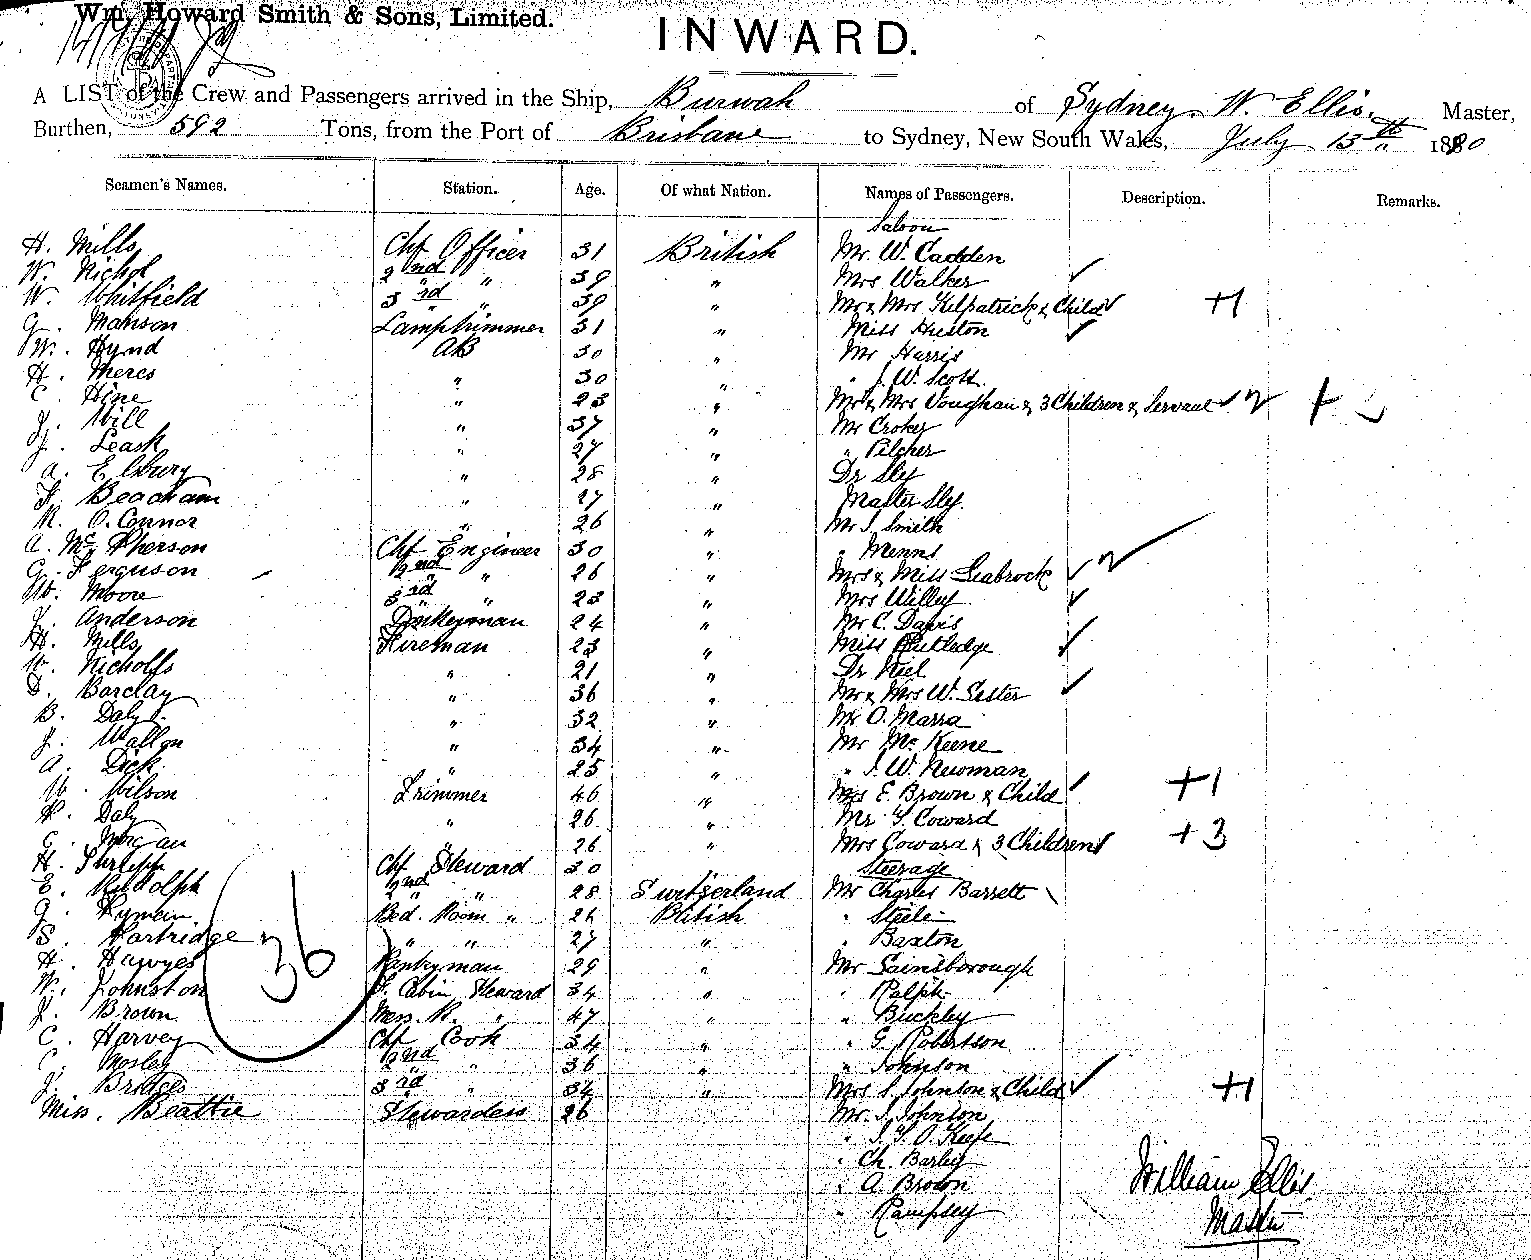 Wm. Howard Smith & Sons, Limited.
INWARD.
A LIST of the Crew and Passengers arrived in the Ship, Burwah of Sydney, W. Ellis, Master,
Burthen, 592 Tons, from the Port of Brisbane to Sydney, New South Wales, July 13th 1890
Seamen's Names. Station. Age. Of what Nation. Names of Passengers. Description. Remarks.
Saloon
H. Mills Chf Officer 31 British Mr. W. Cadden
W. Nichol 2nd " 39 " Mrs Walker ✓
W. Whitfield 3rd " 39 " Mr & Mrs Kilpatrick & Child ✓ +1
G. Manson Lamptrimmer 31 " Miss Huston ✓
W. Hynd AB 30 " Mr Harris
H. Meres " 30 " " J. W. Scott
C. Hine " 23 " Mr & Mrs Vaughan & 3 Children & Servant ✓ +
J. Will " 37 " Mr Croker
J. Leask " 27 " " Pilcher
A. Elsbury " 28 " Dr Sly
F. Beacham " 27 " Master Sly.
R. O. Connor " 26 " Mr J. Smith
A. McPherson Chf Engineer 30 " " Menns
G. Ferguson 2nd " 26 " Mrs & Miss Seabrook ✓
W. Moore 3rd " 23 " Mrs Willey ✓
J. Anderson Donkeyman 24 " Mr C. Davis
H. Mills Fireman 23 " Miss Rutledge ✓
W. Nicholls " 21 " Dr Niel
D. Barclay " 36 " Mr & Mrs W. Sister ✓
B. Daly " 32 " Mr O. Marra
J. Wallon " 34 " Mr McKeene
A. Dick " 25 " " J. W. Newman
W. Wilson Trimmer 46 " Mrs E. Brown & Child ✓ +1
P. Daly " 26 " Mr. G. Coward
C. Morgan " 26 " Mrs Coward & 3 Children ✓ +3
Steerage
H. Chf Steward 30 "
E. Rudolph 2nd " 28 Switzerland Mr Charles Barrett
G. Hymen Bed Room " 26 British " Steele
S. Hartridge " " 27 " " Baxton
H. Hawyes Pantryman 29 " Mr Gainsborough
W. Johnston F. Cabin Steward 34 " " Ralph
J. Brown Mess R. " 47 " " Buckley
C. Harvey Chf Cook 34 " " G. Robertson
C. Mosley 2nd " 36 " " Johnson
J. Bridges 3rd " 34 " Mrs S. Johnson & Child ✓ +1
Miss. Beattie Stewardess 26 Mr. J. Johnson
36
" J. G. O'Keefe
" Ch. Barley
" A. Brown
" Rampley
William Ellis
Master